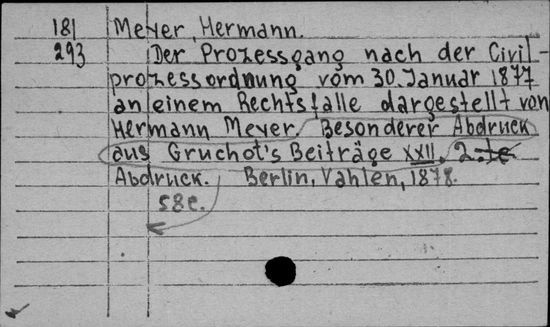 181 Meyer, Hermann.
293 Der Prozessgang nach der Civil-
prozessordnung vom 30. Januar 1877
an einem Rechtsfalle dargestellt von
Hermann Meyer. Besonderer Abdruck
aus Gruchot's Beiträge XXII. 2.te
Abdruck. Berlin, Vahlen, 1878.